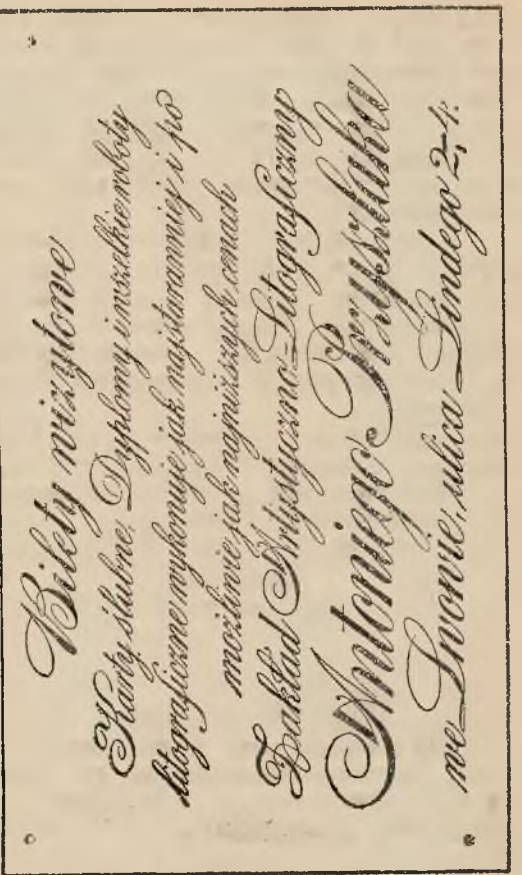 Bilety wizytowe
Karty ślubne, Dyplomy i wszelkie roboty
litograficzne wykonuje jak najstaranniej i po
możliwie jak najniższych cenach
Zakład Artystyczno-Litograficzny
Antoniego Przyszlaka
we Lwowie, ulica Lindego 2,4.